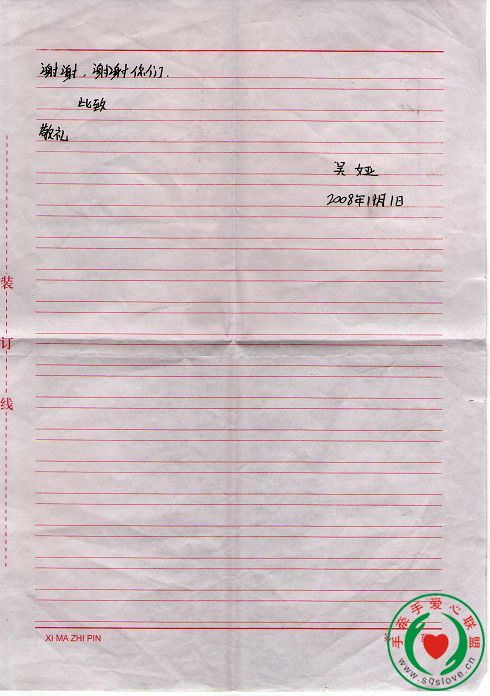 谢谢，谢谢你们.
此致
敬礼
吴娅
2008年11月1日
装
订
线
XI MA ZHI PIN
手牵手爱心联盟
www.sqslove.cn